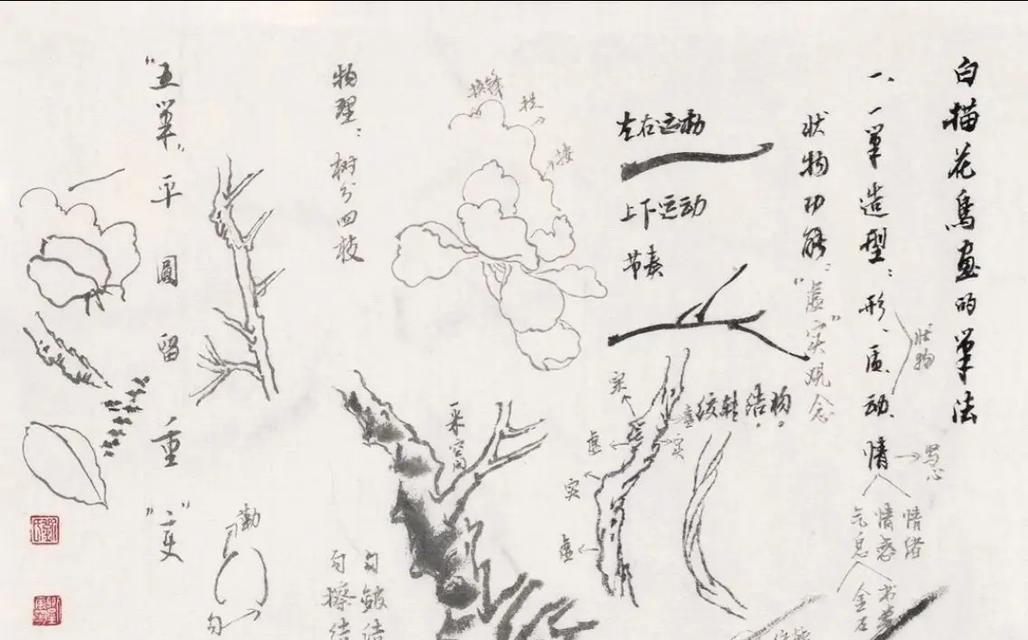 白描花鳥画的筆法
一、一筆造型：形、质、动、情
状物
→写心
情绪
情感
气息
书卷
金石
状物功能：“虚实”观念
左右运动
上下运动
节奏
绞转结构。
实
虚
实
虚
实
虚
物理：树分四枝
转
接
勾皴结
勾擦结
“五筆”平圓留重“变”
勒
勾